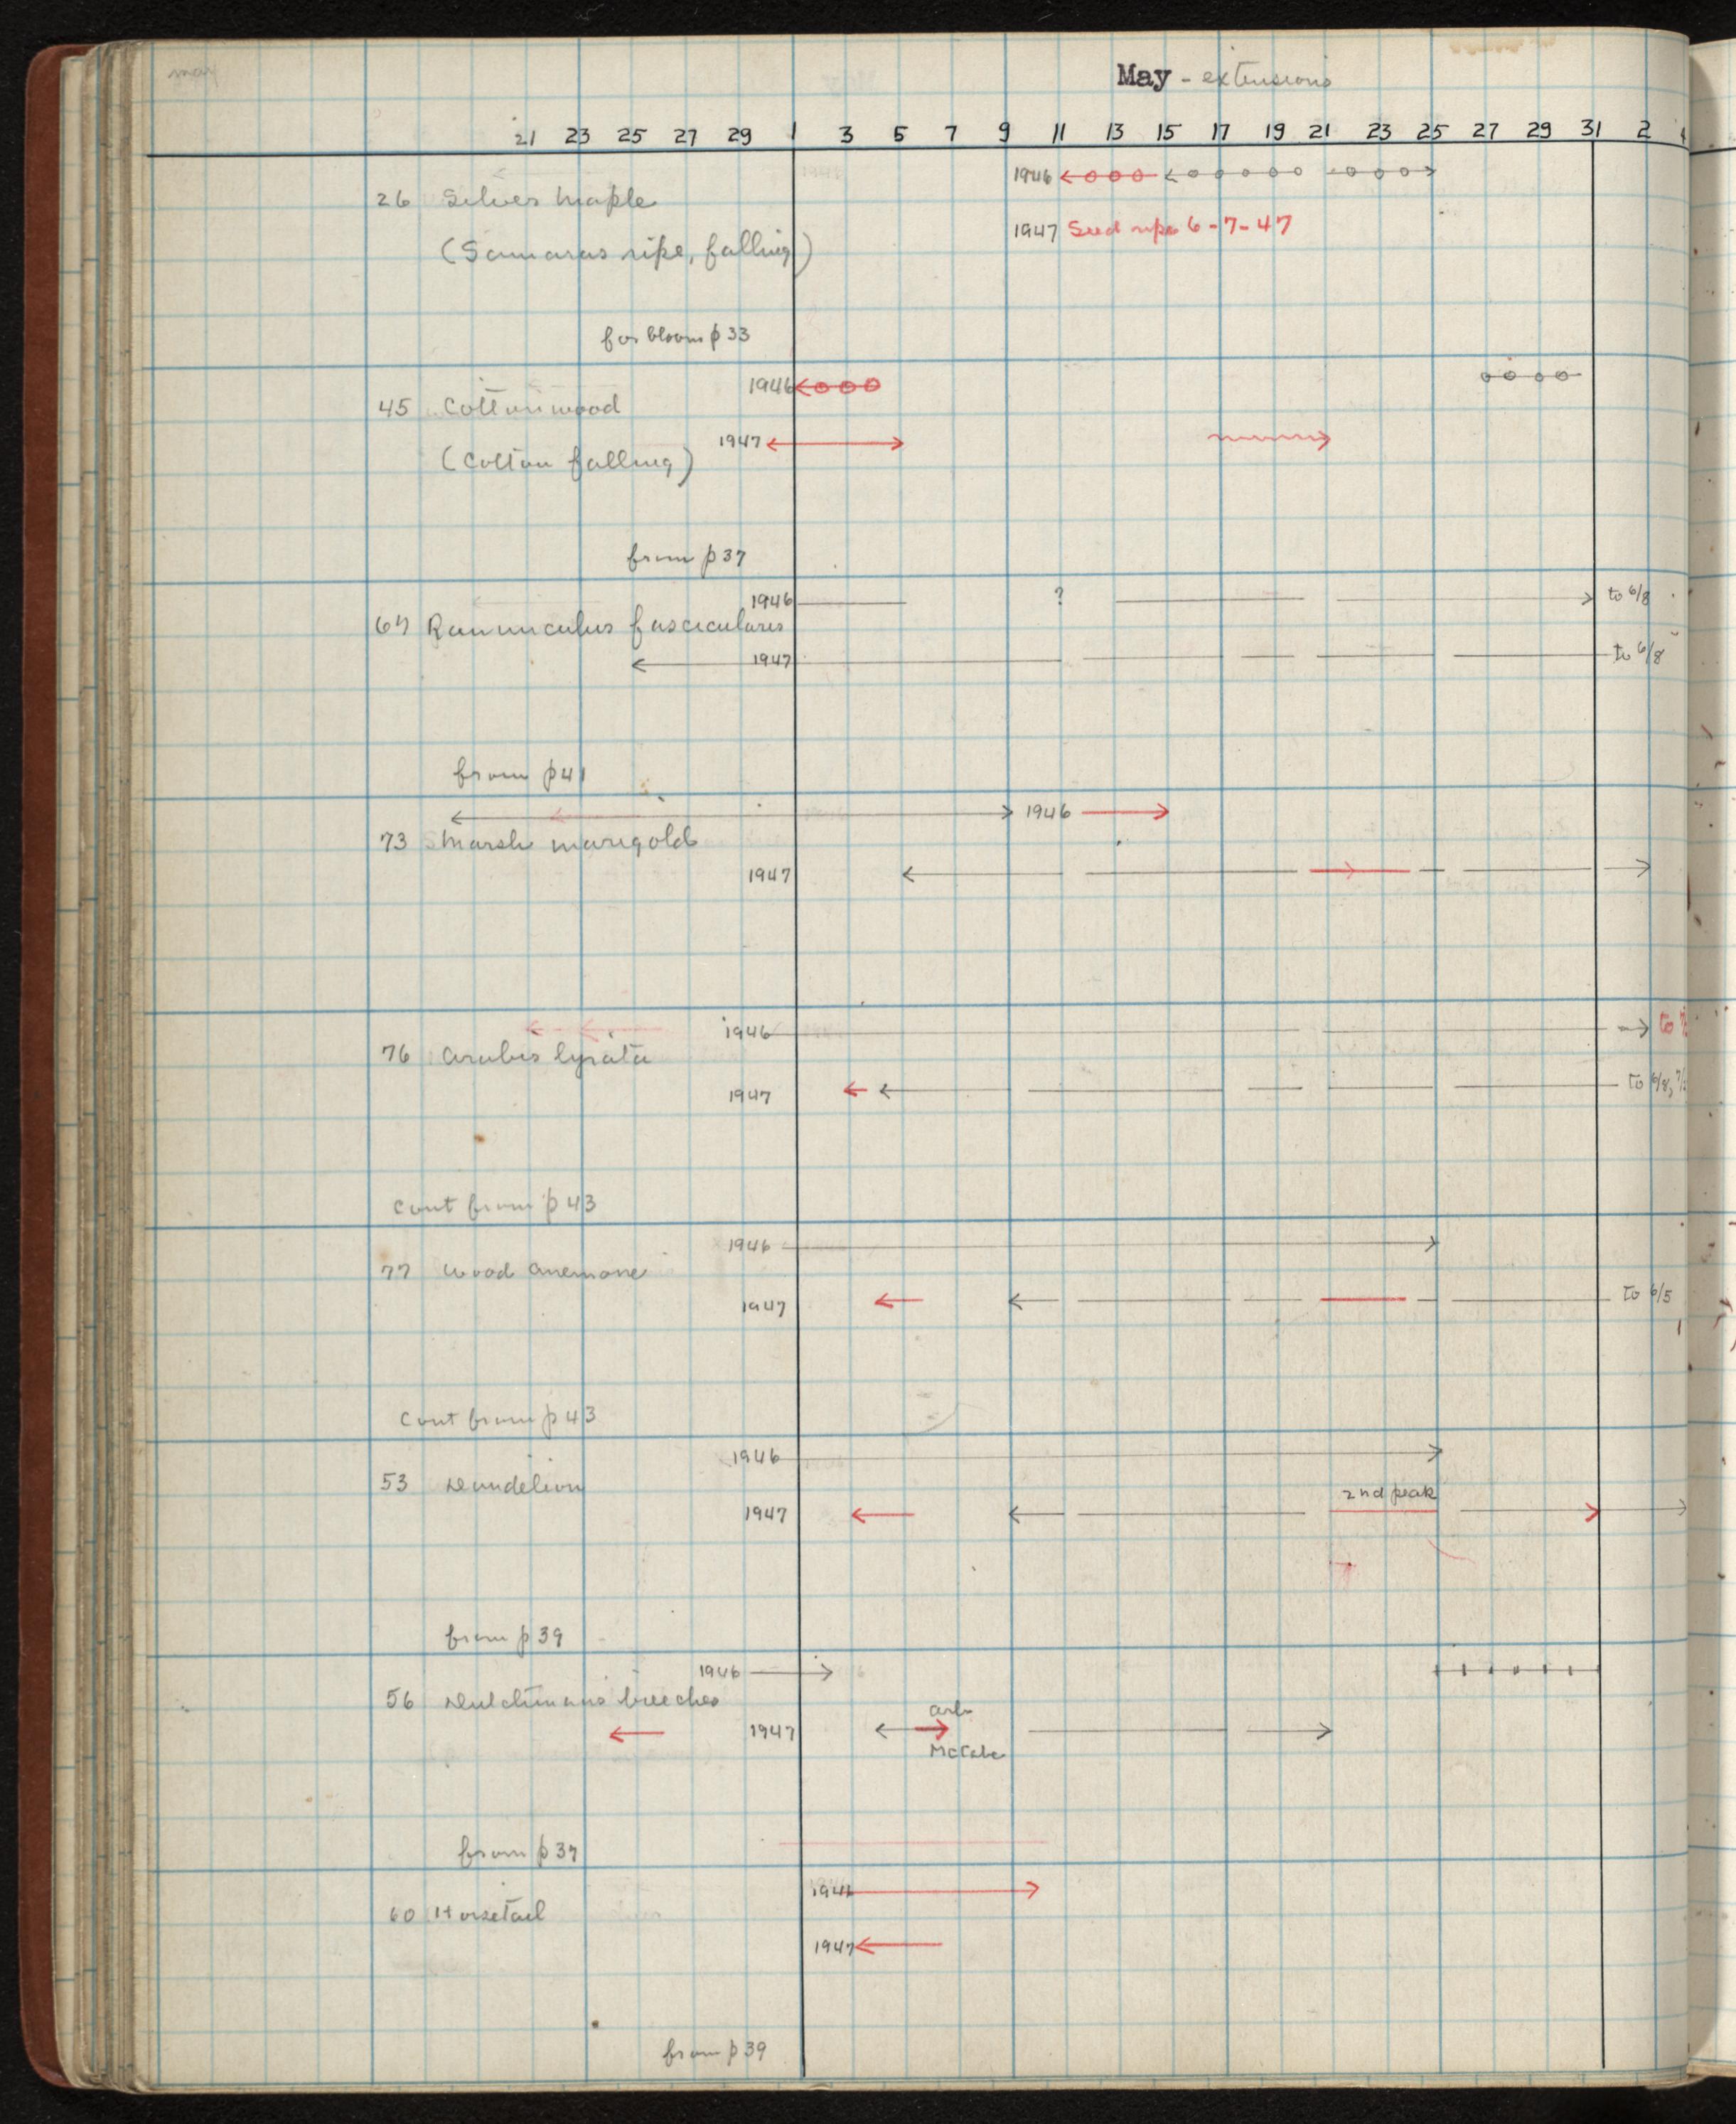 May
May - extensions
21 23 25 27 29 1 3 5 7 9 11 13 15 17 19 21 23 25 27 29 31 2
1946
26 Silver maple
1947 Seed ripe 6-7-47
(Samaras ripe, falling)
for bloom p 33
1946
45 Cottonwood
1947
(Cotton falling)
from p 37
1946 ? to 6/8
67 Ranunculus fascicularis
1947 to 6/8
from p 41
1946
73 Marsh marigold
1947
1946 to
76 Arabis lyrata
1947 to 6/8,
Cont from p 43
1946
77 Wood anemone
1947 to 6/5
Cont from p 43
1946
53 Dandelion
2nd peak
1947
from p 39
1946
56 Dutchmans breeches
arb
1947
McCabe
from p 37
1946
60 Horsetail
1947
from p 39